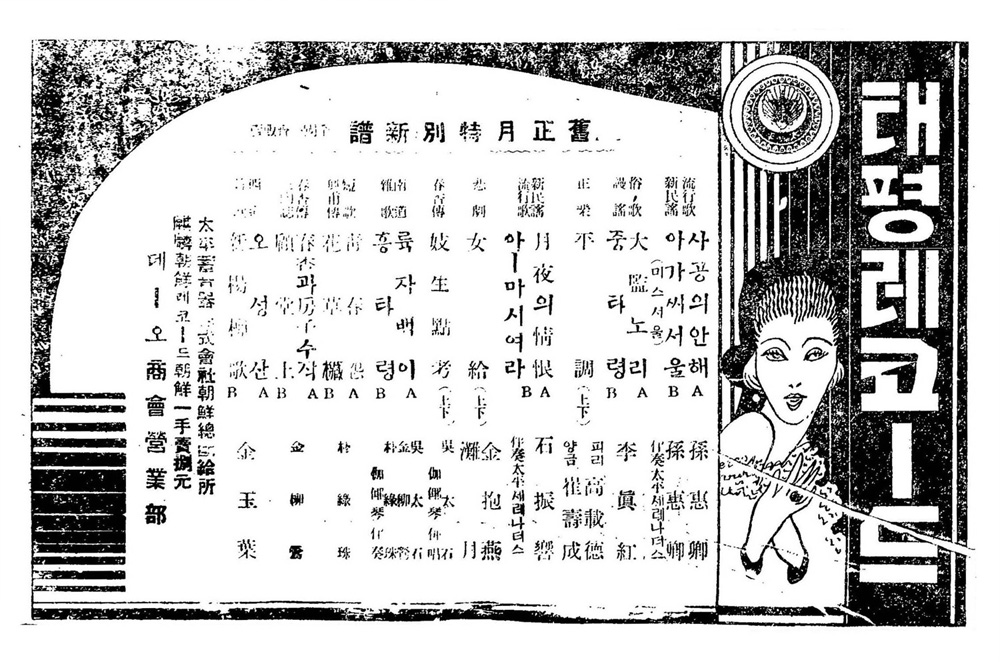 태평레코ー드
舊正月特別新譜
流行歌 사공의안해 A 孫惠卿
新民謠 아가씨서울 (미스서울) B 孫惠卿
伴奏太平세레나더스
俗歌 大監노리 A 李眞紅
漫謠 중타령 B
正樂 平調 (上下) 피리 高載德
양금 崔壽成
新民謠 月夜의情恨 A 石振響
流行歌 아ー마시여라 B 伴奏太平세레나더스
悲劇 女給 (上下) 金抱燕
灘月
春香傳 妓生點考 (上下) 吳太石
伽倻琴併唱
南道 륙자백이 A 吳太石
雜歌 흥타령 B 金柳鶯 朴綠珠
伽倻琴伴奏
短歌 靑春怨 A 朴綠珠
興甫傳 花草欌 B
春香傳 春香과房子수작 A 金柳鶯
願堂上 B
西道 오성산 A 金玉葉
楊柳歌 B
太平蓄音器株式會社朝鮮總配給所
麒麟朝鮮레코ー드朝鮮一手賣捌元
데ー오商會營業部